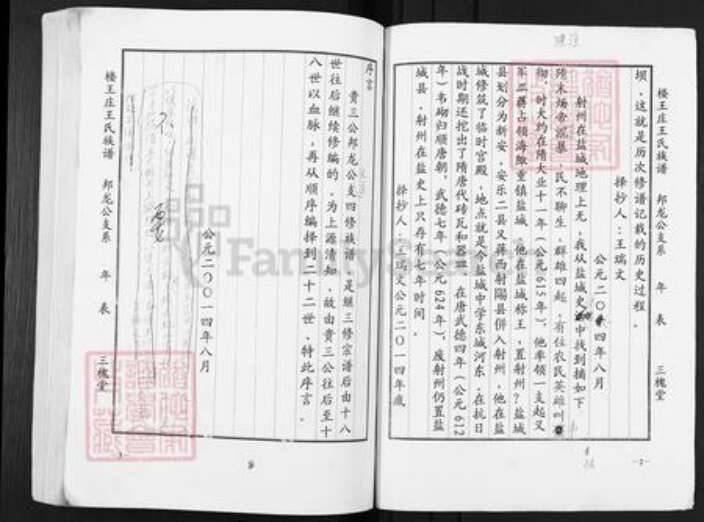 楼王庄王氏族谱 邦龙公支系 年表 三槐堂
坝。这就是历次修谱记载的历史过程。
择抄人：王瑞文
公元二〇一四年八月
射州在盐城地理上无，我从盐城史中找到摘如下
隋末炀帝深暴，民不聊生，群雄四起，有位农民英雄叫
彻，时大约在隋大业十一年（公元615年），他率领一支起义
军二蒋占领海陬重镇盐城，他在盐城称王，置射州？盐城
县划分为新安，安乐二县又蒋西射陽县併入射州，他在盐
城修筑了临时宫殿，地点就是今盐城中学东城河东，在抗日
战时期还挖出了隋唐代砖瓦和器皿，在唐武德四年（公元612
年）韦砌归顺唐朝，武德七年（公元624年），废射州仍置盐
城县，射州在盐史上只存有七年时间．
择抄人：王瑞文公元二〇一四年底
-2-
序言
贵三公邦龙公支四修族谱，是继三修宗谱后由十八
世往后继续修编的，为上源清知、故由贵三公往后至十
八世以血脉，再从顺序编择到二十二世、特此序言．
公元二〇〇一四年八月
楼王庄王氏族谱 邦龙公支系 年表 三槐堂
FamilySearch